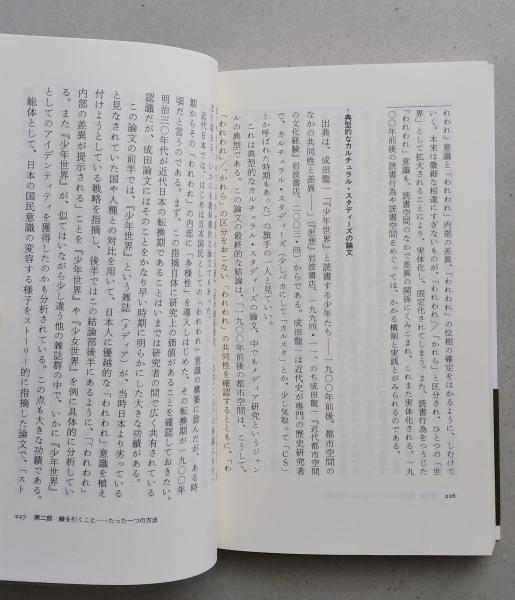 れわれ」意識と、「われわれ」内部の差異、「われわれ」の位相の確定をはかるように、しむけて
いく。本来は微細な相違にすぎないものが、「われわれ」／「かれら」と区分され、ひとつの「世
界」として拡大されることにより、実体化し、固定化されてしまう。また、読書行為をつうじた
「われわれ」意識も、読書空間のなかで差異の関係にくみこまれ、これまた実体化される。一九
〇〇年前後の読書行為や読書空間をめぐっては、かかる構制と実践とがみられるのである。
・典型的なカルチュラル・スタディーズの論文
出典は、成田龍一「『少年世界』と読書する少年たち――一九〇〇年前後、都市空間
なかの共同性と差異――」（『思想』岩波書店、一九九四・一一、のち成田龍一『近代都市空間
の文化経験』岩波書店、二〇〇三・四）からである。成田龍一は近代史が専門の歴史研究者
で、カルチュラル・スタディーズ（少しバカにして「カルスタ」とか、少し気取って「CS」
とか呼ばれた時期もあった）の旗手の一人と見ていい。
これは典型的なカルチュラル・スタディーズの論文、中でもメディア研究というジャン
ルの典型である。この論文の最終的な結論は、「一九〇〇年前後の都市空間は、こうして、
「われわれ」／かれら」の区分をおこない、「われわれ」の共同性を確認するとともに、「わ
226
近代日本では、はじめは日本国民としての「われわれ」意識の構築に励んだが、ある時
期からその「われわれ」の内部に「多様性」を導入しはじめた、その転換期が一九〇〇年
頃だと言うのである。まず、この指摘自体に研究上の価値があることを確認しておきたい。
明治三〇年代が近代日本の転換期であることはいまでは研究者の間で広く共有されている
認識だが、成田論文はそのことをかなり早い時期に明らかにした大きな功績がある。
この論文の前半では、『少年世界』という雑誌（メディア）が、当時日本より劣っている
と見なされていた国や人種との対比を用いて、日本人に優越的な「われわれ」意識を植え
付けようとしている戦略を指摘し、後半ではこの結論部後半にあるように、「「われわれ」
内部の差異が提示される」ことを『少年世界』や『少女世界』を例に具体的に分析してい
る。また『少年世界』が、似てはいながら少し違う他の雑誌群の中で、いかに『少年世界』
としてのアイデンティティを獲得したのかも分析されている。この点も大きな功績である。
総体として、日本の国民意識の変容する様子をストーリー的に指摘した論文で、「スト
227　第二部　線を引くこと――たった一つの方法